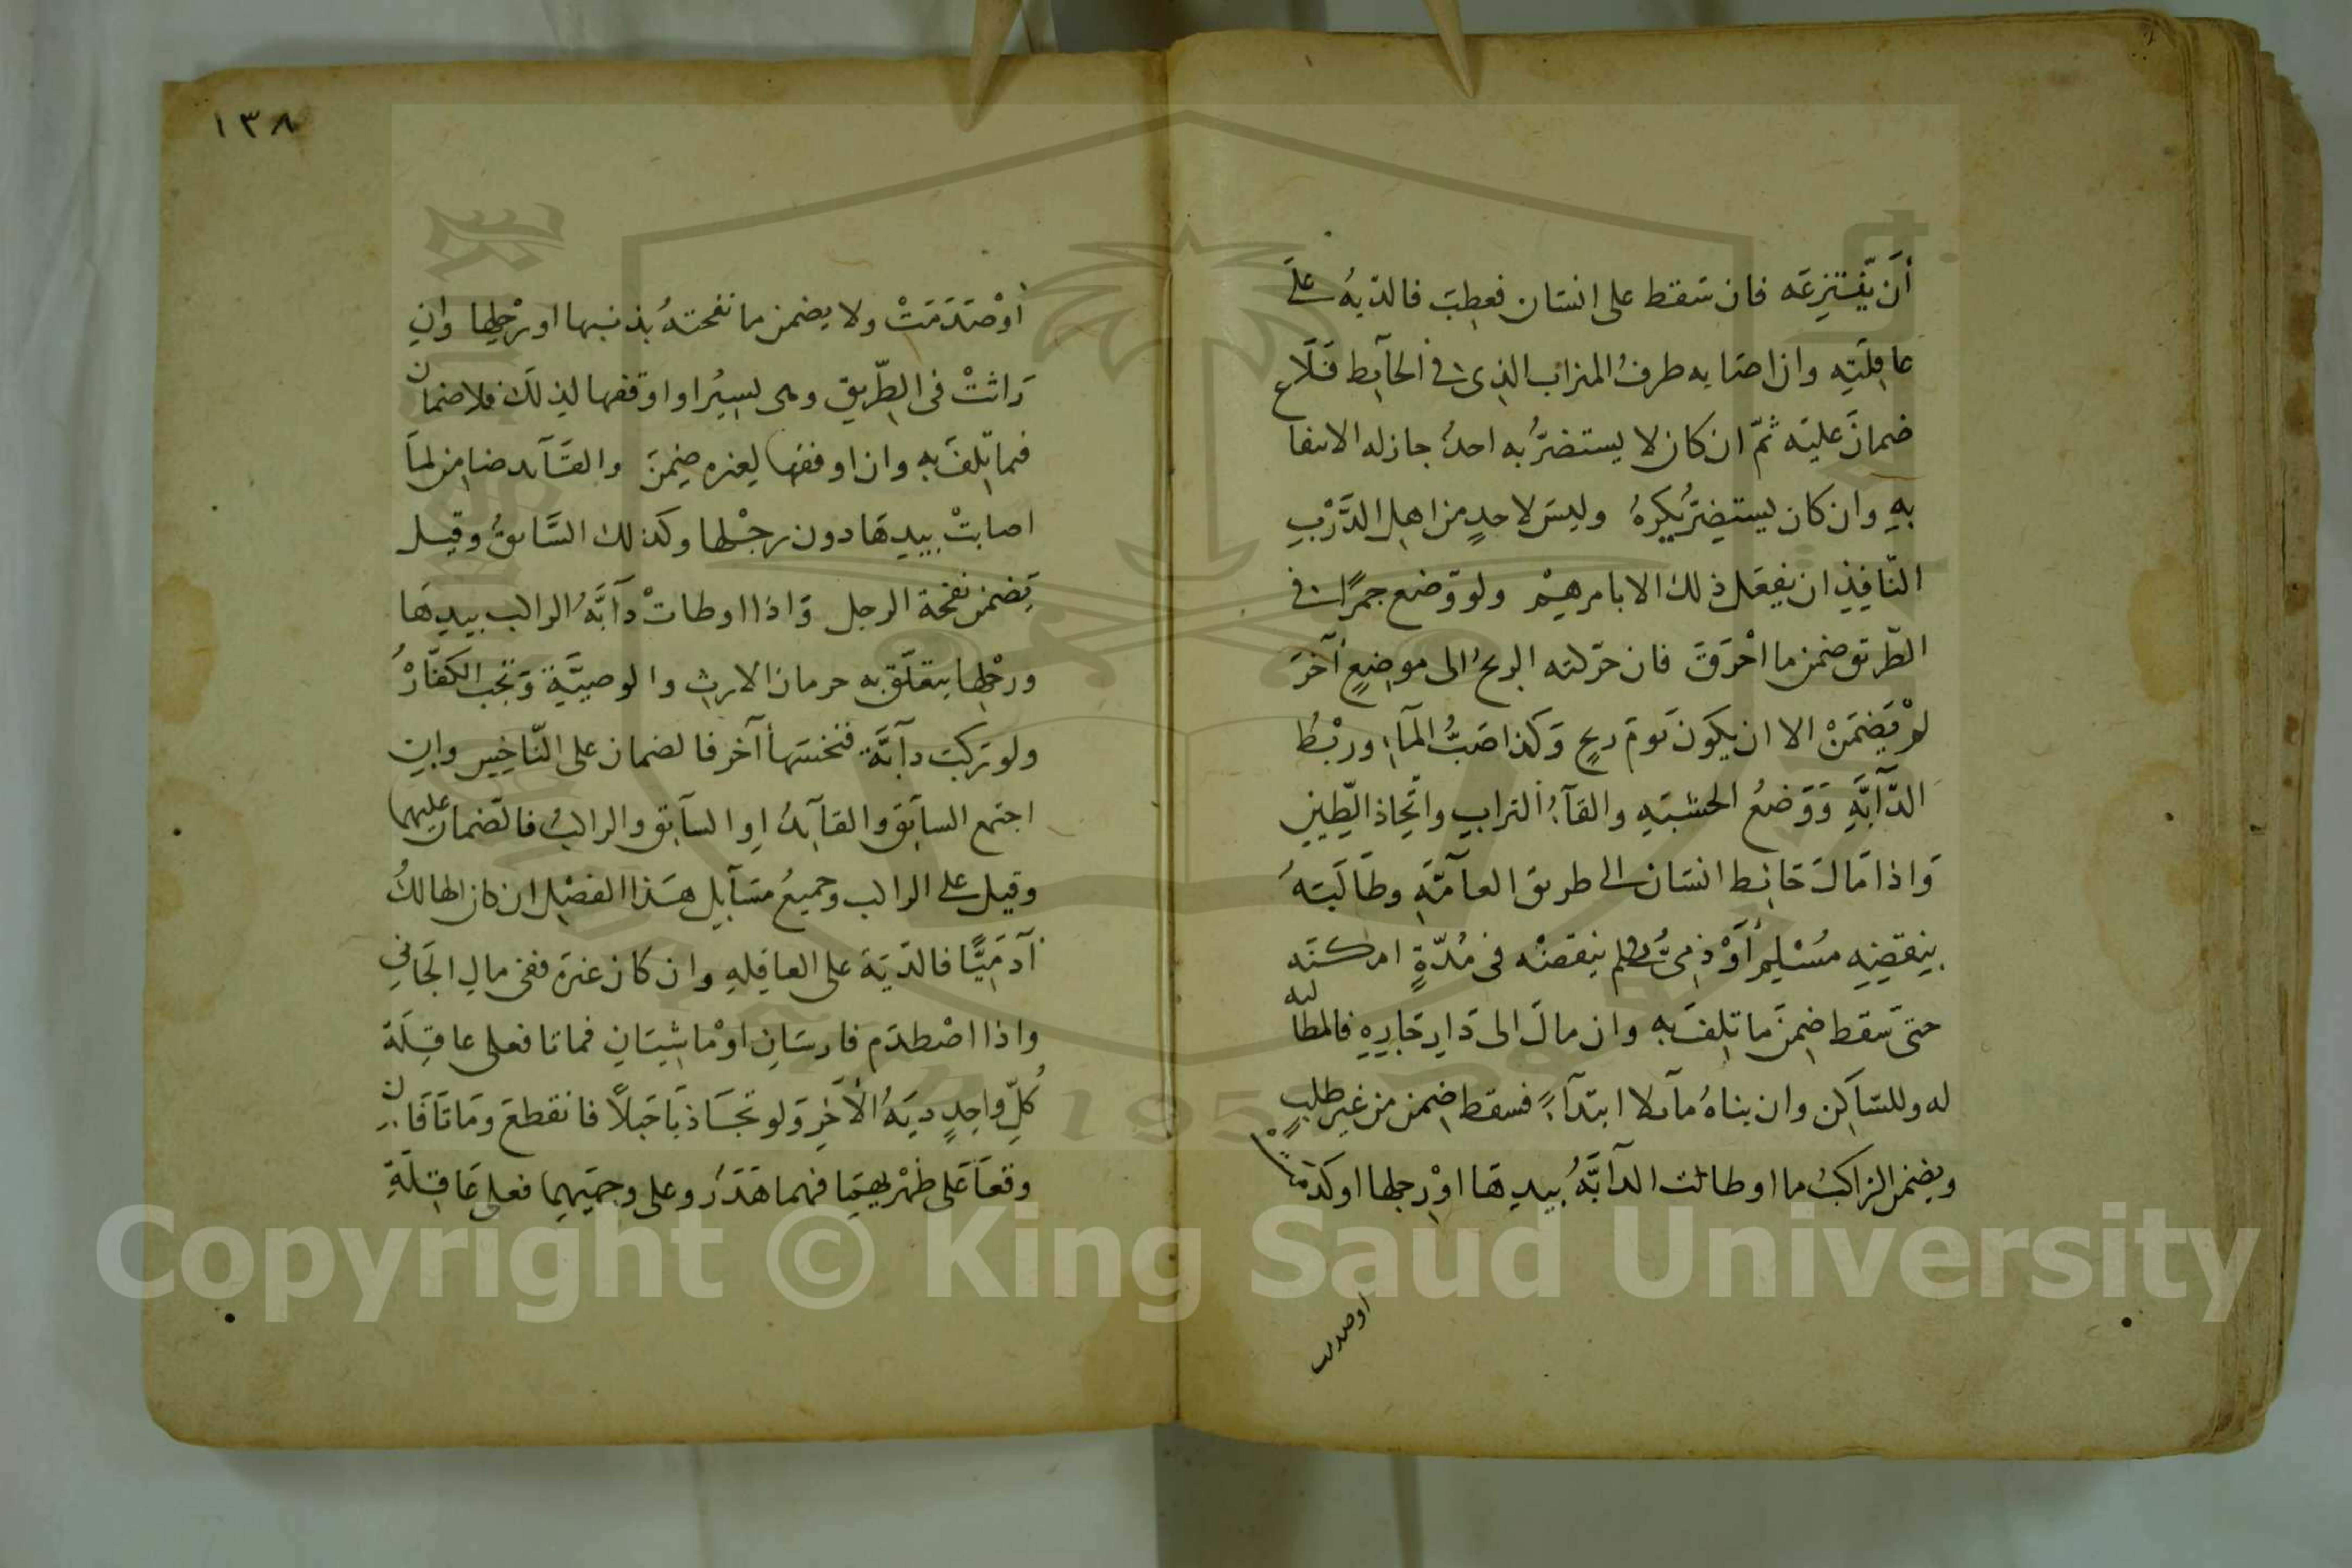 أن ينتزعه فان سقط على انسان فعطب فالدية على
عاقلته وان اصابه طرف الميزاب الذي في الحآيط فلا
ضمان عليه ثم ان كان لا يستضر به احد جاز له الانتفاع
به وان كان يستضر يكره وليس لاحد من اهل الدرب
النافذ ان يفعل ذلك الا بامرهم ولو وضع جمرا في
الطريق ضمن ما احرق فان حركته الريح الى موضع آخر
لم يضمن الا ان يكون يوم ريح وكذا صب المآء وربط
الدآبة ووضع الخشبة والقآء التراب واتخاذ الطين
واذا مال حائط انسان الى طريق العآمة وطالبه
بنقضه مسلم أو ذمي فلم ينقضه في مدة امكنه
حتى سقط ضمن ما تلف به وان مال الى دار جاره فالمطالبه
له وللساكن وان بناه مآيلا ابتدآء فسقط ضمن من غير طلب
ويضمن الراكب ما اوطات الدآبة بيدها او رجلها او كدمت
اوصدمت
١٣٨
أو صدمت ولا يضمن ما نفحته بذنبها او رجلها وان
راثت في الطريق وهى تسير او اوقفها لذلك فلا ضمان
فيما تلف به وان اوقفها لغيره ضمن والقآيد ضامن لما
اصابت بيدها دون رجلها وكذلك السآيق وقيل
يضمن نفحة الرجل واذا اوطات دآبة الراكب بيدها
ورجلها يتعلق به حرمان الارث والوصية وتجب الكفارة
ولو ركب دآبة فنخسها آخر فالضمان على الناخس وان
اجتمع السآيق والقآيد او السآيق والراكب فالضمان عليهما
وقيل على الراكب وجميع مسآيل هذا الفصل ان كان الهالك
آدميا فالدية على العاقله وان كان غيره ففى مال الجاني
واذا اصطدم فارسان او ماشيان فماتا فعلى عاقلة
كل واحد دية الآخر ولو تجاذبا حبلا فانقطع وماتا فان
وقعا على ظهريهما فهما هدر وعلى وجهيهما فعلى عاقلة
Copyright © King Saud University